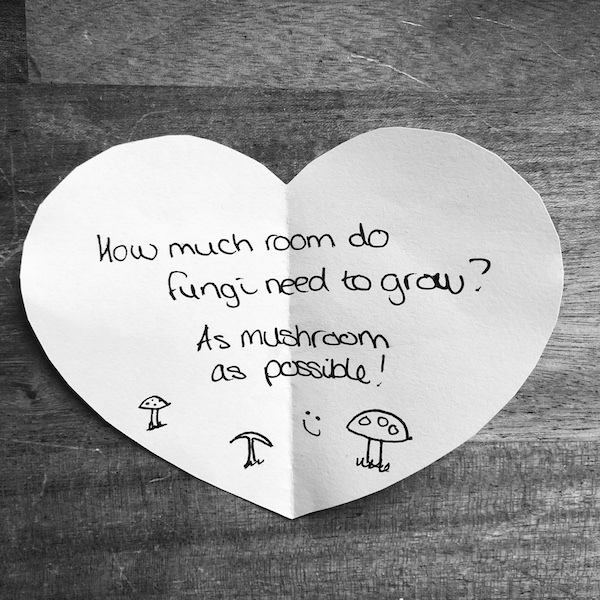 How much room do
fungi need to grow?
As mushroom
as possible!